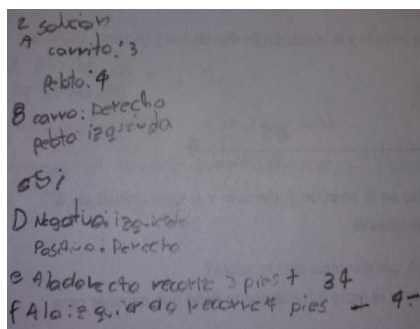 2 solucion
A
carrito: 3
Pelota: 4
B carro: Derecho
pelota: izquierda
c Si
D Negativo: izquierdo
Positivo: Derecho
e A la derecha recorre 3 pies + 3+
f A la izquierda recorre 4 pies - 4-